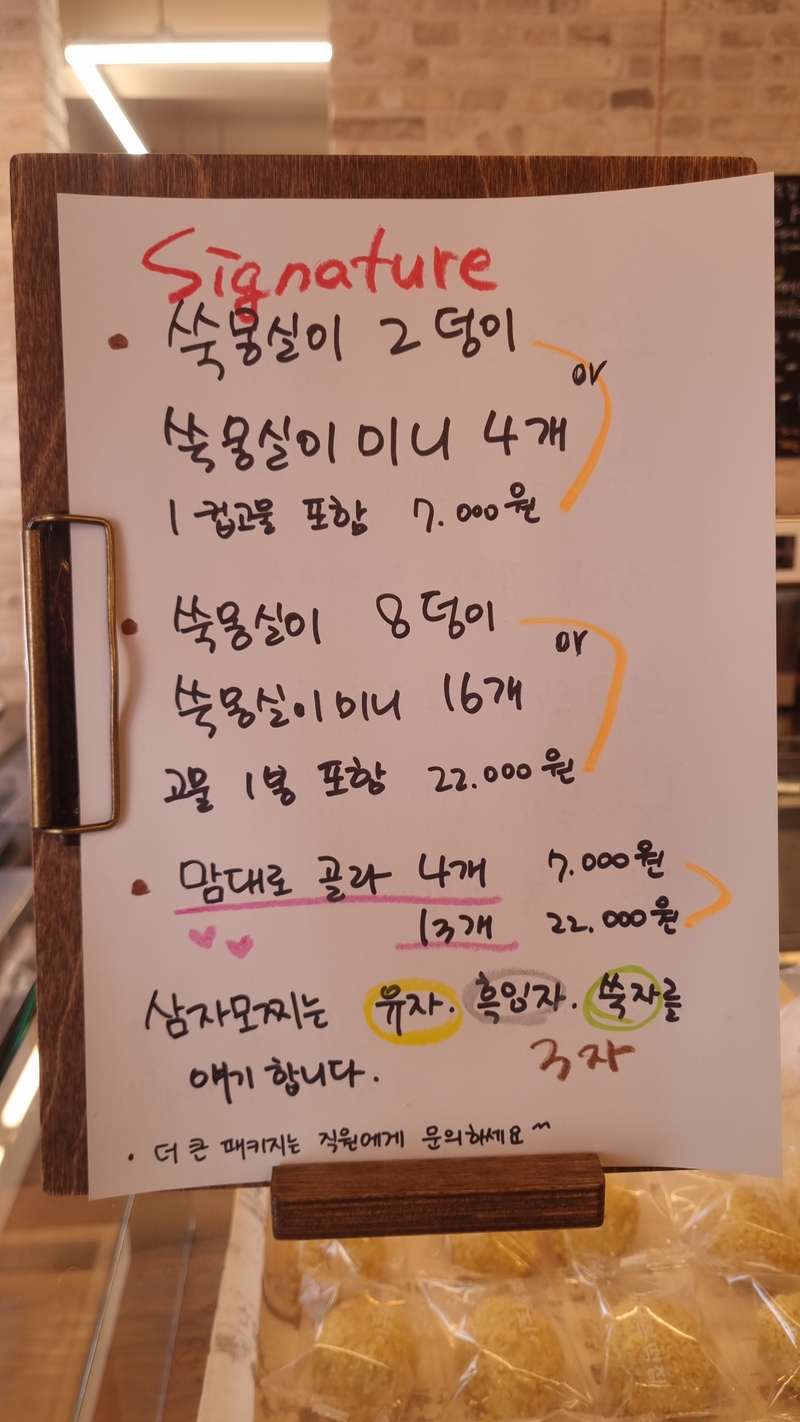 Signature
• 쑥뭉실이 2덩이
or
쑥뭉실이 미니 4개
1컵고물 포함 7.000원
• 쑥뭉실이 8덩이
or
쑥뭉실이 미니 16개
고물 1봉 포함 22.000원
• 맘대로 골라 4개 7.000원
13개 22.000원
삼자모찌는 유자. 흑임자. 쑥자를
구자
얘기합니다.
• 더 큰 패키지는 직원에게 문의하세요^^